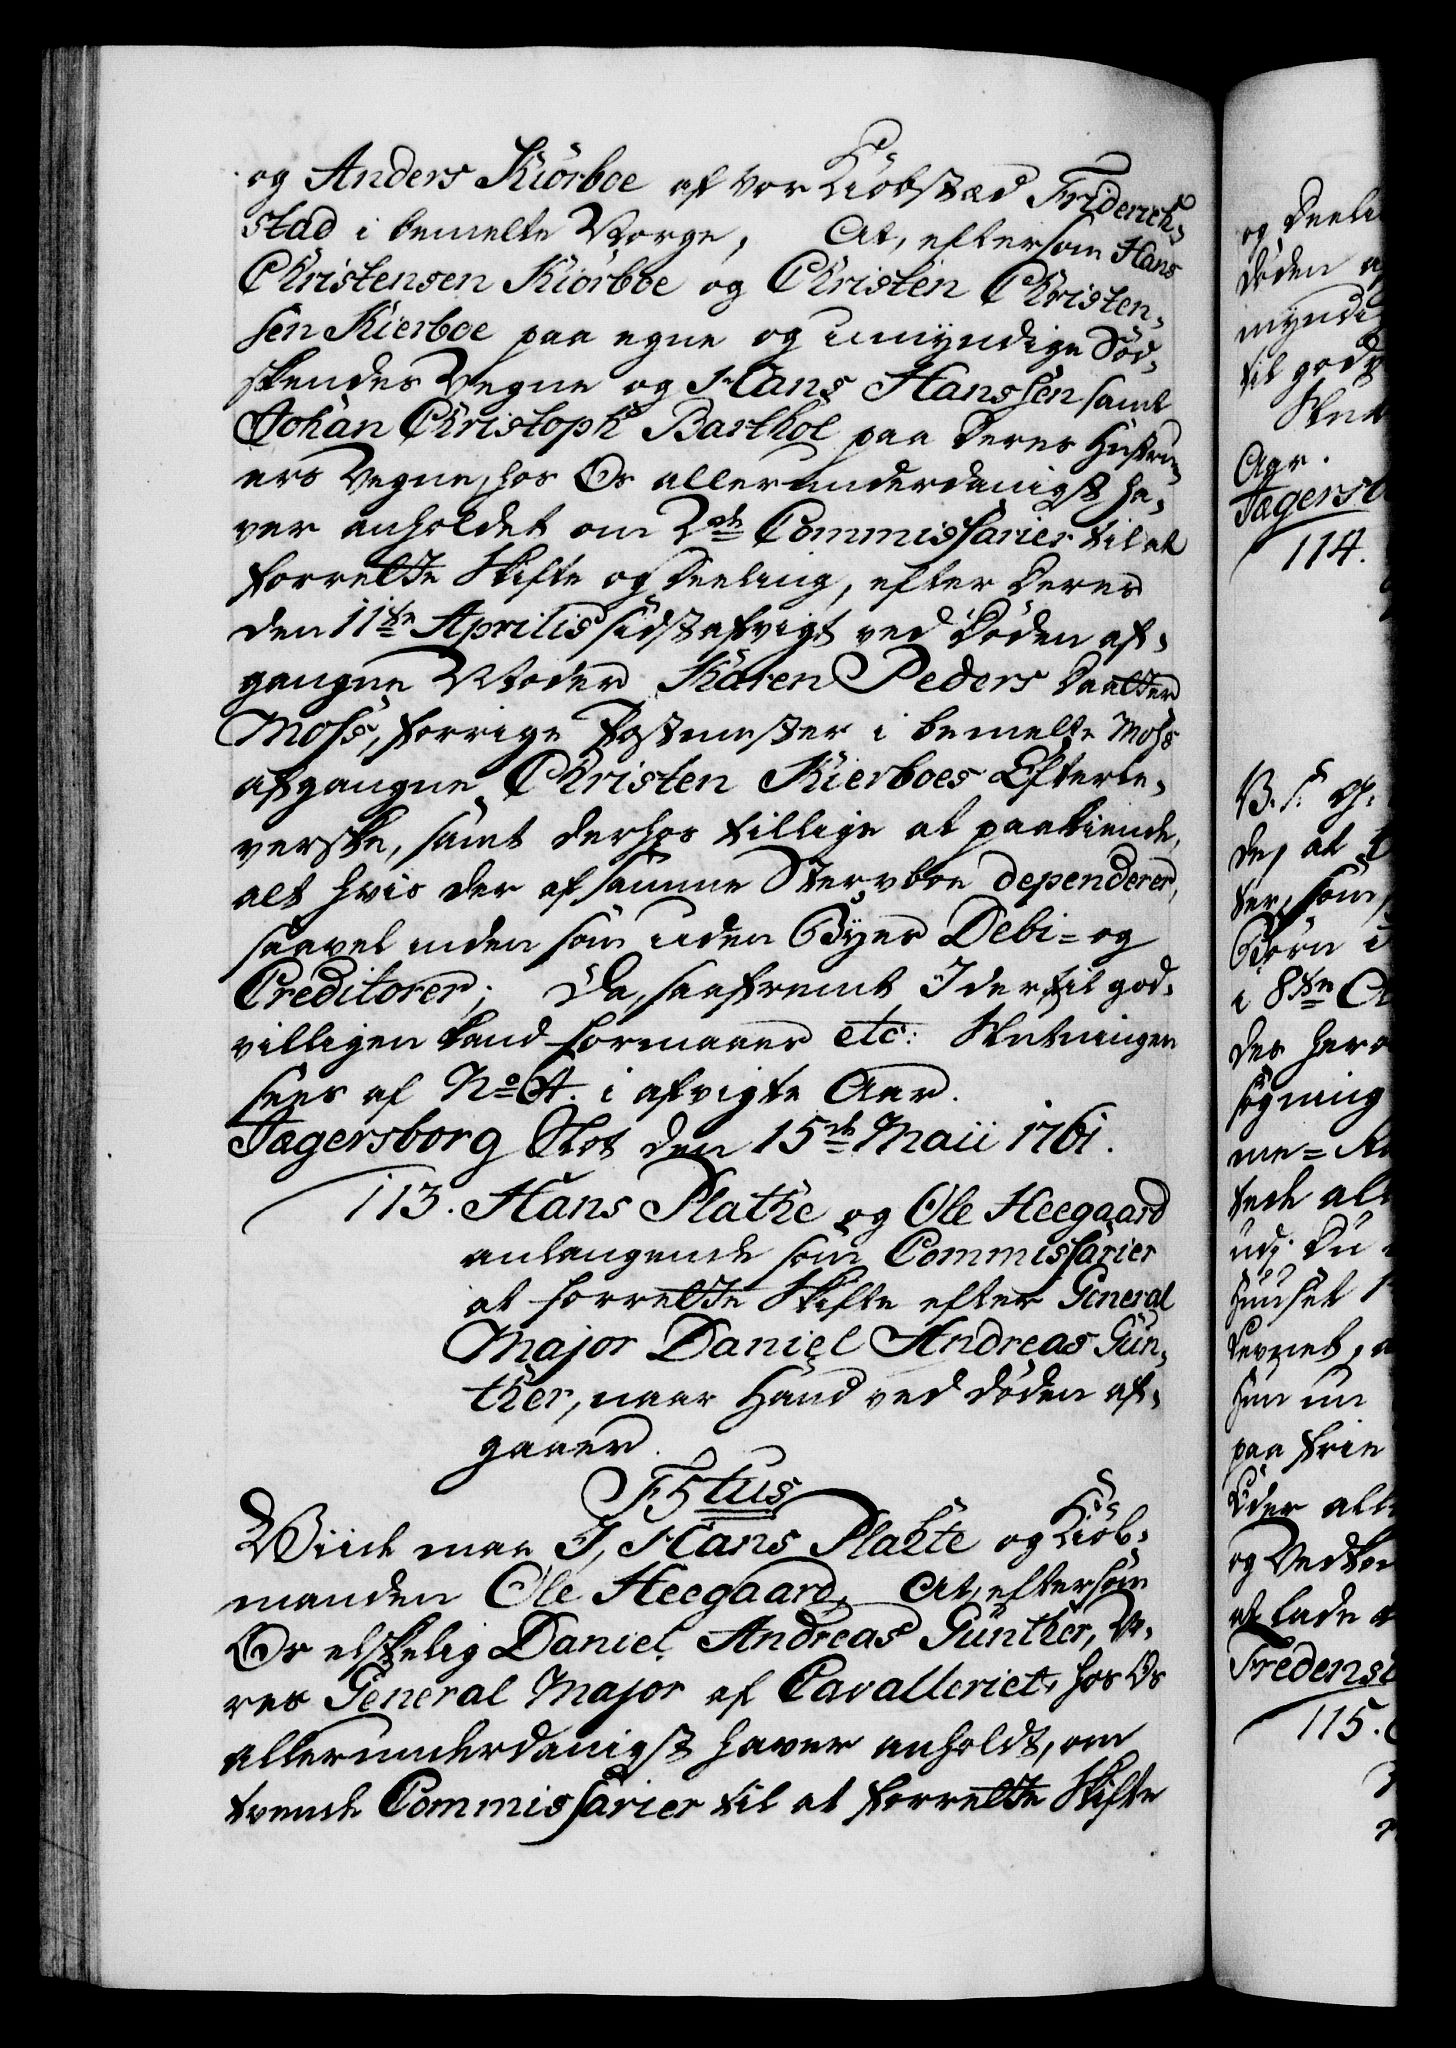 og Anders Kiörboe af vor Kiöbstæd Friderich-
stad i bemelte Norge, At, eftersom Hans
Christensen Kiörboe og Christen Christen-
sen Kierboe paa egne og umyndige Sød-
skendes Vegne og Hans Hanssen samt
Johan Christoph Barthol paa deres Hustru-
ers Vegne, hos Os allerunderdanigst ha-
ver anholdet om 2de Commissarier til at
forrette Skifte og Deeling, efter deres
den 11te Aprilis sidstafvigt ved Døden af-
gangne Moder Karen Peders Daatter
Moss, forrige Postmester i bemelte Moss
afgangne Christen Kierboes Efterle-
verske, samt derhos tillige at paakiende,
alt hvis der af samme Stervboe dependerer,
saavel inden som uden Byes Debi- og
Creditorer; Da, saafremt I dertil god-
villigen kand formaaes etc: Slutningen
sees af No 4. i afvigte Aar.
Jægersborg Slot den 15de Maii 1761.
113. Hans Plathe og Ole Heegaard
anlangende som Commissarier
at forrette Skifte efter General
Major Daniel Andreas Gün-
ther, naar Hand ved døden af-
gaaer.
F5tus
Viide maa I, Hans Plahte og Kiöb-
manden Ole Heegaard, At, eftersom
Os elskelig Daniel Andreas Günther, Vo-
res General Major af Cavalleriet, hos Os
allerunderdanigst haver anholdt, om
tvende Commissarier til at forrette Skifte
og Deeli
Døden a
myndi
til gode
Slut
Aar.
Jægersb
114.
B. S. G.
de, at
ter, som
Børn i
i 8te
des her
søgning
me=
tede all
udj. Du
Huuset
Levnet,
hun un
paa frie
Eder alle
og Vedkom
at lade
Fredens
115.